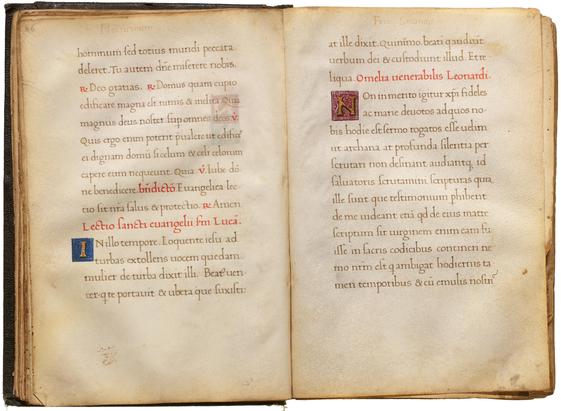 hominum sed totius mundi peccata
deleret. Tu autem dn̄e miserere nobis.
℟. Deo gratias. ℟. Domus quam cupio
edificare magna est nimis & inclita Quia
magnus deus noster sup omnes deos ℣.
Quis ergo enim poterit p̄ualere ut edificꝫ
ei dignam domū si celum & celi celorum
capere eum nequeunt. Quia. ℣ Iube dō
ne benedicere. bn̄dictō Euangelica lec
tio sit nr̄a salus & protectio. ℟ Amen
Lectio sancti euangelii scḋm Lucā.
IN illo tempore. Loquente iesu ad
turbas extollens uocem quedam
mulier de turba dixit illi. Beatꝰ uen
ter q te portauit & ubera que suxisti:
at ille dixit. Quinimo. beati q audiūt
uerbum dei & custodiunt illud. Et re
liqua. Omelia uenerabilis Leonardi.
NOn inmerito igitur xp̄i fideles
ac marie deuotos adquos no-
bis hodie est sermo rogatos esse uelim
ut archana at profunda silentia per
scrutari non desinant audiantq id
saluatoris scrutamini scripturas quia
ille sunt que testimonium phibent
de me uideant enā qd de eius matre
scriptum sit uirginem enim eam fu
isse in sacris codicibus contineri ne
mo nr̄m est q ambigat hodiernis ta
men temporibus & cū emulis nostris